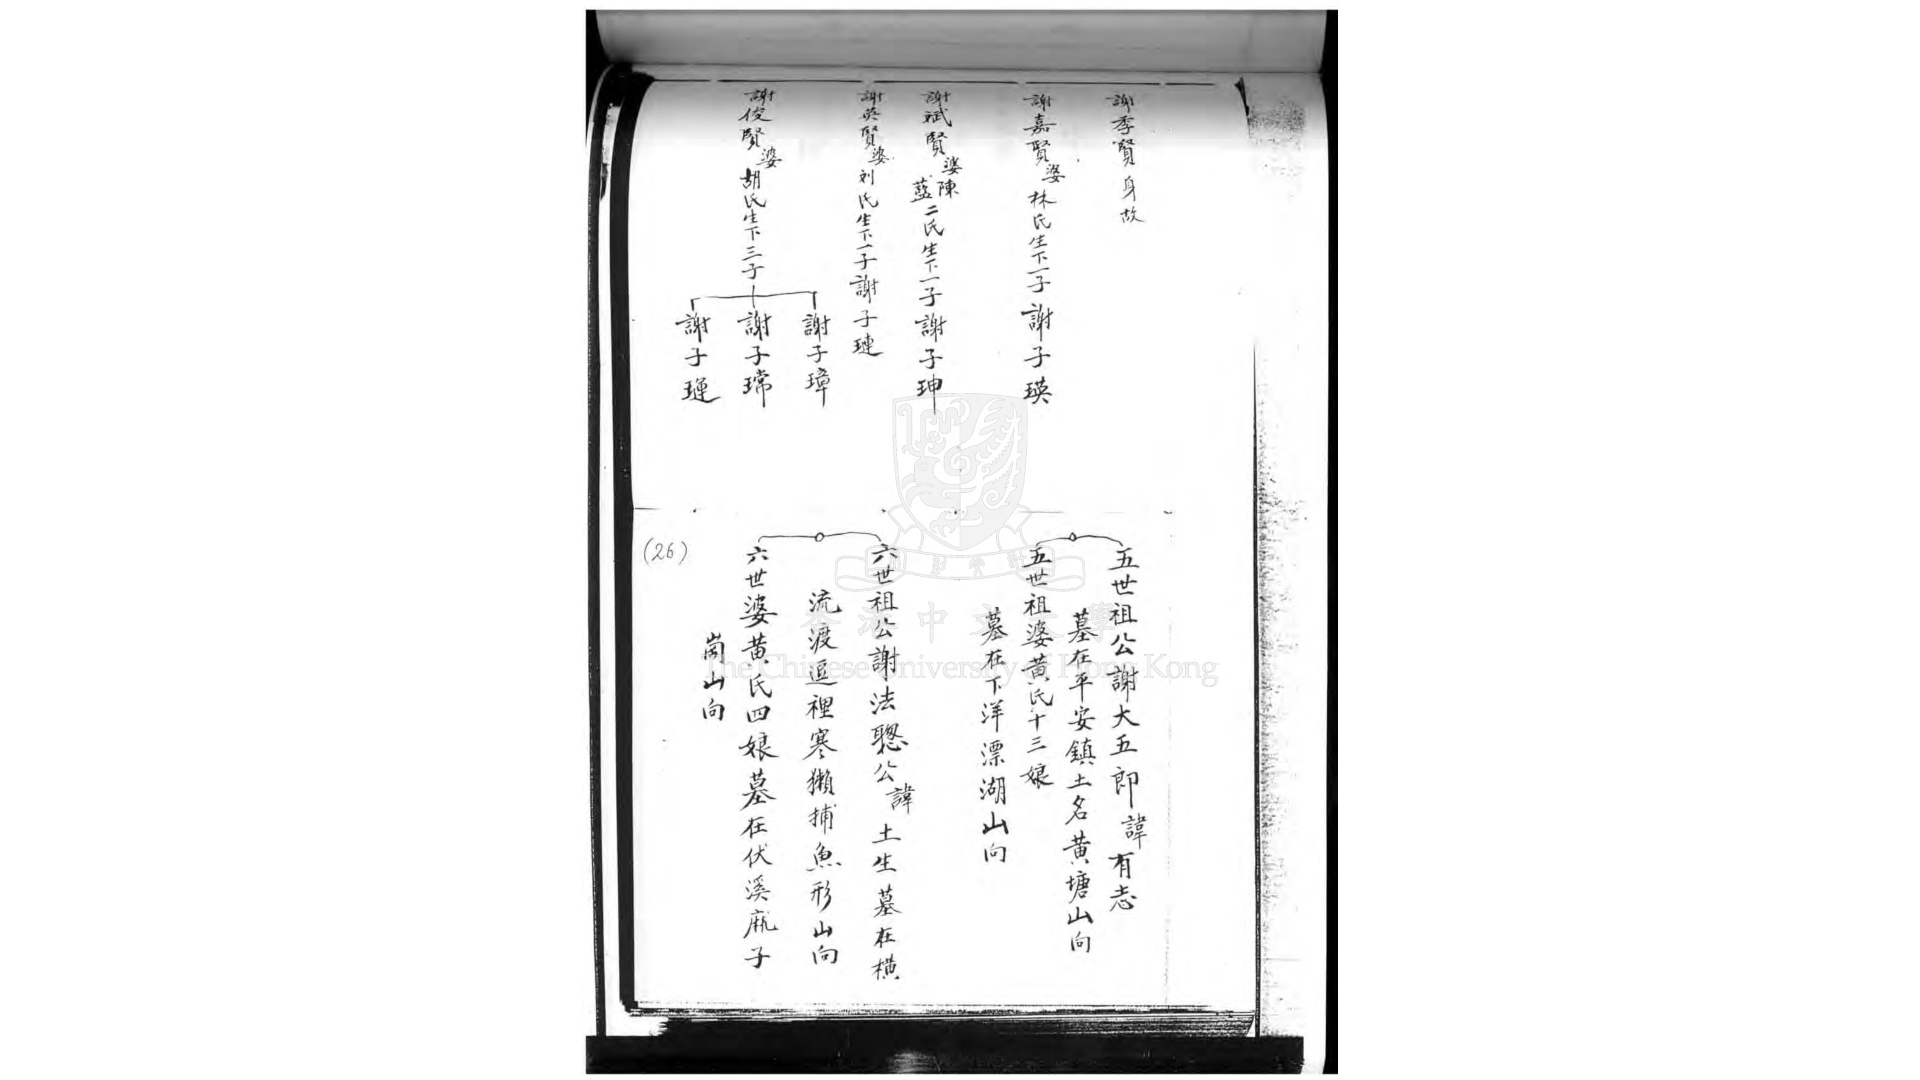 謝季賢身故
謝嘉賢婆林氏生下一子謝子瑛
謝斌賢婆陳藍二氏生下一子謝子珅
謝英賢婆刘氏生下一子謝子璉
謝俊賢婆胡氏生下三子
謝子璋
謝子瑺
謝子璡
五世祖公謝大五郎諱有志
墓在平安鎮土名黄塘山向
五世祖婆黄氏十三娘
墓在下洋漂湖山向
六世祖公謝法聰公諱土生墓在橫
流渡逕裡寒獺捕魚形山向
六世婆黄氏四娘墓在伏溪麻子
崗山向
(26)
香港中文大學
The Chinese University of Hong Kong